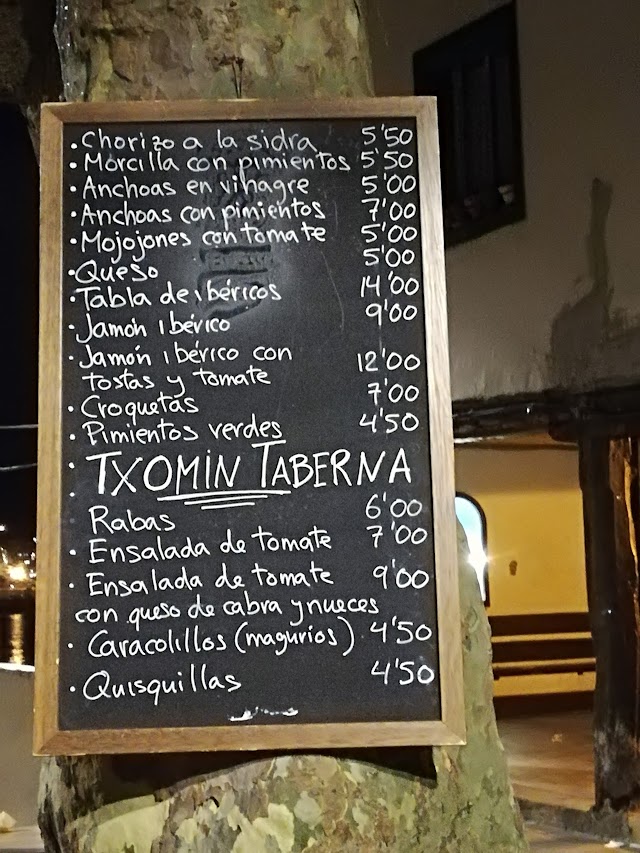 · Chorizo a la sidra 5'50
· Morcilla con pimientos 5'50
· Anchoas en vinagre 5'00
· Anchoas con pimientos 7'00
· Mojojones con tomate 5'00
· Queso 5'00
· Tabla de ibéricos 14'00
· Jamón ibérico 9'00
· Jamón ibérico con
tostas y tomate 12'00
· Croquetas 7'00
· Pimientos verdes 4'50
TXOMIN TABERNA
Rabas 6'00
· Ensalada de tomate 7'00
· Ensalada de tomate 9'00
con queso de cabra y nueces
· Caracolillos (magurios) 4'50
· Quisquillas 4'50